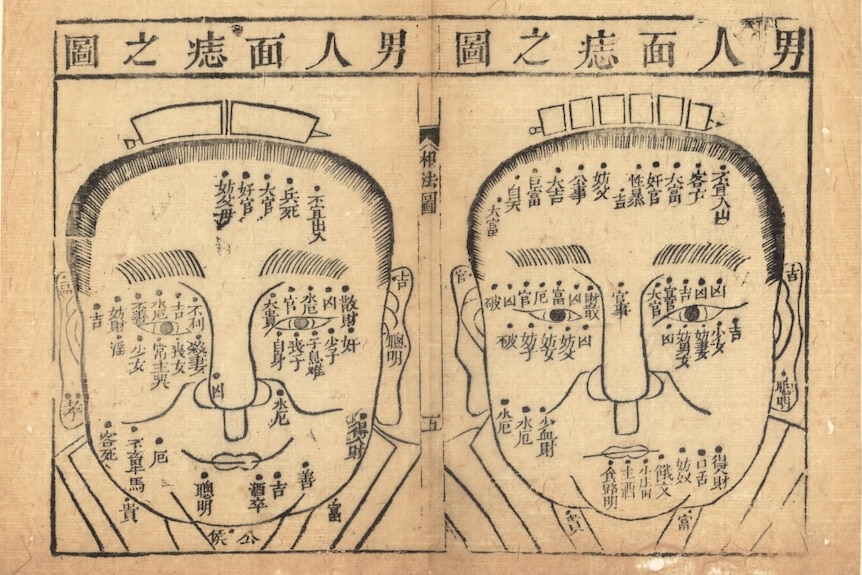 男人面痣之圖
不宜入山
客子
大富
奸官
性暴
吉
妨父
公事
大吉
巨富
自夭
大富
官
吉
凶
凶
吉
宜官
大官
官事
財散
凶
富
厄
官
凶
破
吉
少女
妨妻
妨男女
凶
妨父
妨女
妨子
破
聰明
少血財
水厄
水厄
得財
口舌
妨奴
餓文
主酒
食
富
貴
相法圖
五
男人面痣之圖
不宜出入
兵死
大官
奸官
妨父母
吉
散財
凶
水厄
官
大貴
奸
少子
子息难
喪子
自身
不利
大吉
水厄
不善
妨財
吉
殺妻
喪女
常主哭
少女
淫
聰明
凶
水厄
得人財
客死
不宜車馬
厄
善
吉
酒卒
聰明
富
貴
公
侯